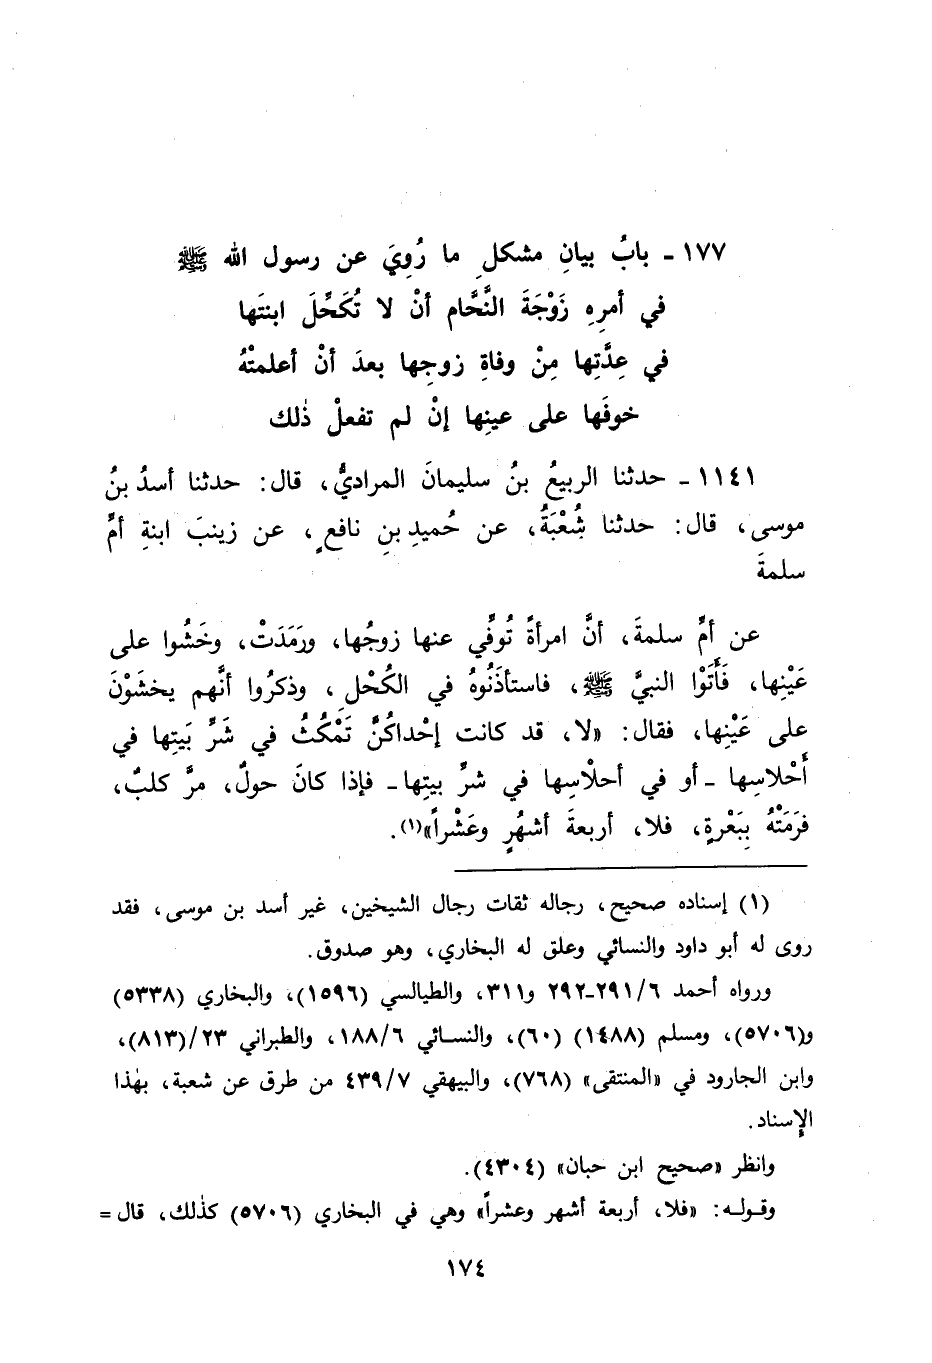 ١٧٧ - بابُ بيانِ مشكلِ ما رُوِيَ عن رسول الله ﷺ
في أمرِهِ زَوْجَةَ النَّحَّام أنْ لا تُكَحِّلَ ابنتَها
في عِدَّتِها مِنْ وفاةِ زوجِها بعدَ أنْ أعلمتْهُ
خوفَها على عينِها إنْ لم تفعلْ ذٰلك
١١٤١ - حدثنا الربيعُ بنُ سليمانَ المراديُّ، قال: حدثنا أسدُ بنُ
موسى، قال: حدثنا شُعْبَةُ، عن حُميدِ بنِ نافعٍ، عن زينبَ ابنةِ أمِّ
سلمةَ
عن أمِّ سلمةَ، أنَّ امرأةً تُوفِّي عنها زوجُها، ورَمَدَتْ، وخَشُوا على
عَيْنِها، فَأَتَوْا النبيَّ ﷺ، فاستأذَنُوهُ في الكُحْلِ، وذكرُوا أنَّهم يخشَوْنَ
على عَيْنِها، فقال: «لا، قد كانت إحْداكُنَّ تَمْكُثُ في شَرِّ بَيتِها في
أَحْلاسِها - أو في أحلاْسِها في شرِّ بيتِها - فإذا كانَ حولٌ، مرَّ كلبٌ،
فرَمَتْهُ بِبَعْرةٍ، فلا، أربعةَ أشهُرٍ وعَشْراً»(١).
(١) إسناده صحيح، رجاله ثقات رجال الشيخين، غير أسد بن موسى، فقد
روى له أبو داود والنسائي وعلق له البخاري، وهو صدوق.
ورواه أحمد ٢٩١/٦-٢٩٢ و٣١١، والطيالسي (١٥٩٦)، والبخاري (٥٣٣٨)
و(٥٧٠٦)، ومسلم (١٤٨٨) (٦٠)، والنسائي ١٨٨/٦، والطبراني ٢٣/(٨١٣)،
وابن الجارود في «المنتقى» (٧٦٨)، والبيهقي ٤٣٩/٧ من طرق عن شعبة، بهٰذا
الإسناد.
وانظر «صحيح ابن حبان» (٤٣٠٤).
وقوله: «فلا، أربعة أشهر وعشراً» وهي في البخاري (٥٧٠٦) كذٰلك، قال =
١٧٤